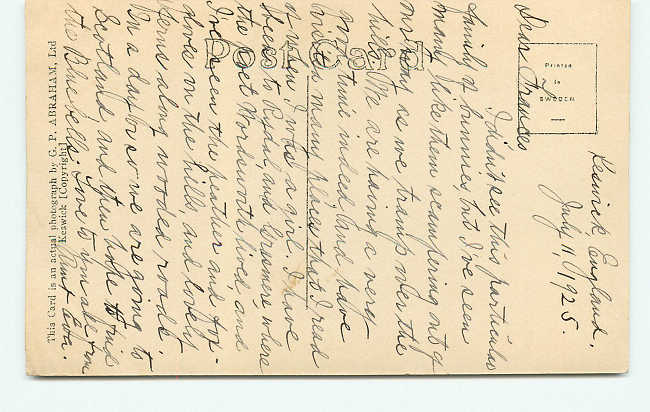 Post Card
Printed
in
SWEDEN
Keswick England.
July 11, 1925.
Dear Frances
I didn't see this particular
family of bunnies, but I've seen
many like them scampering out of
our way as we tramp over the
hills. We are having a very
time indeed and have
visited many places that I read
of when I was a girl. I have
been to Rydal and Grasmere where
the poet Wordsworth lived, and
I've seen the heather and fox-
gloves on the hills, and lovely
ferns along wooded roads.
In a day or so we are going to
Scotland and then hope to find
the Blue bells. Love to you all from
Aunt
This Card is an actual photograph by G. P. ABRAHAM, Ltd
Keswick [Copyright]